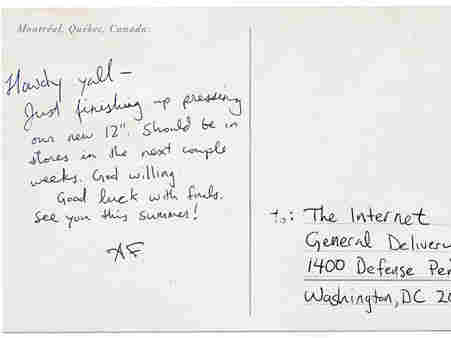 Montréal, Québec, Canada.
Howdy yall —
Just finishing up pressing
our new 12". Should be in
stores in the next couple
weeks. God willing
Good luck with finals.
See you this summer!
AF.
to: The Internet
General Deliver
1400 Defense Pe
Washington, DC 20